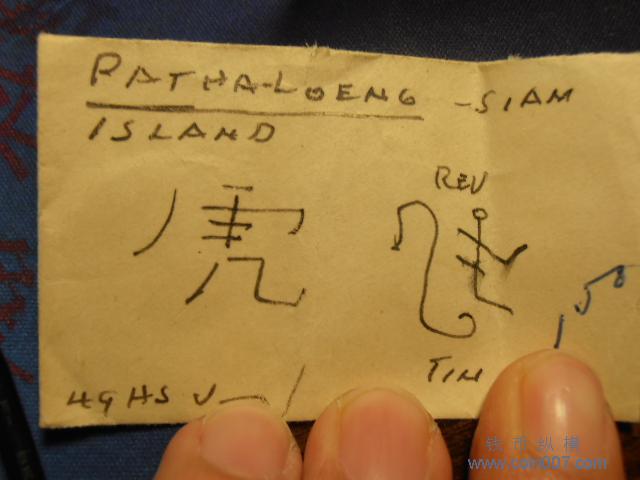 PATHA-LOENG - SIAM
ISLAND
虎
REV
TIN
150
49 HS
钱币纵横
www.coin007.com